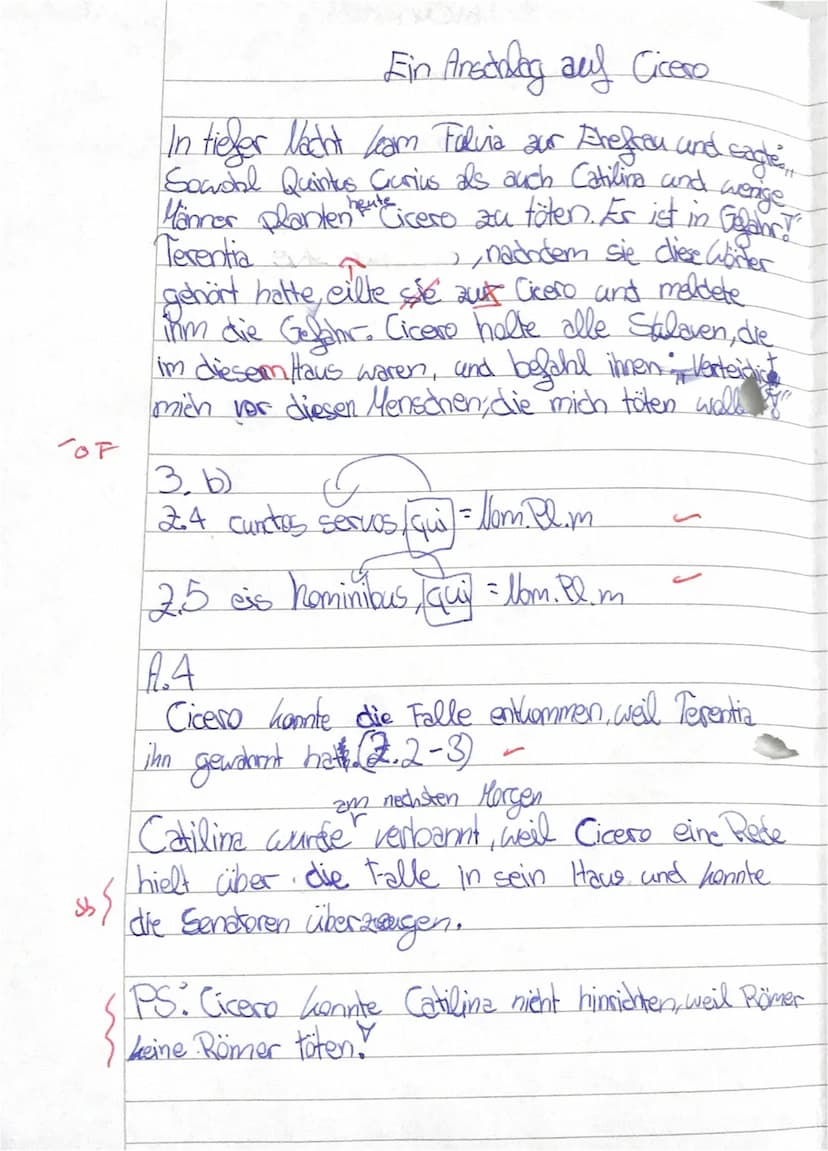 Ein Anschlag auf Cicero
In tiefer Nacht kam Fulvia zur Ehefrau und sagte: „
Sowohl Quintus Curius als auch Catilina und wenige
heute
Männer planten Cicero zu töten. Er ist in Gefahr!"
Terentia , nachdem sie diese Wörter
gehört hatte, eilte sie zur Cicero und meldete
ihm die Gefahr. Cicero holte alle Sklaven, die
im diesem Haus waren, und befahl ihnen: „Verteidigt
mich vor diesen Menschen, die mich töten
-0F
3. b)
Z.4 cunctos servos, qui = Nom.Pl.m
Z.5 eis hominibus, qui = Nom.Pl.m
A.4
Cicero konnte die Falle entkommen, weil Terentia
ihn gewahrnt hat. (Z.2-3)
am nechsten Morgen
Catilina wurde verbannt, weil Cicero eine Rede
hielt über die Falle in sein Haus und konnte
sb
die Senatoren überzeugen.
PS: Cicero konnte Catilina nicht hinrichten, weil Römer
keine Römer töten!